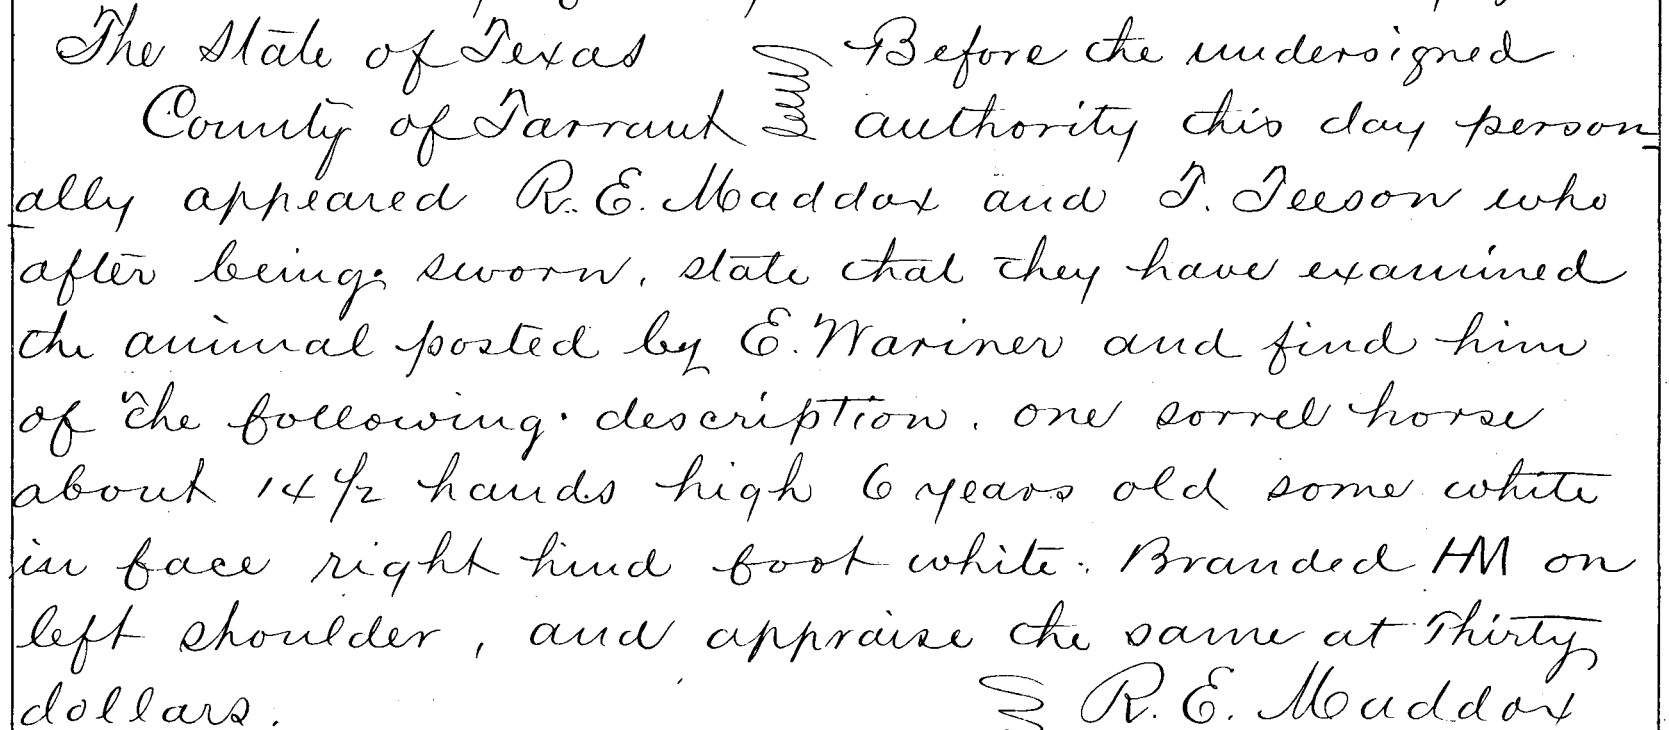 The State of Texas Before the undersigned
County of Tarrant authority this day person
ally appeared R. E. Maddox and T. Teeson who
after being sworn, state that they have examined
the animal posted by E. Wariner and find him
of the following description. one sorrel horse
about 14 1/2 hands high 6 years old some white
in face right hind foot white. Branded HM on
left shoulder, and appraise the same at Thirty
dollars. R. E. Maddox